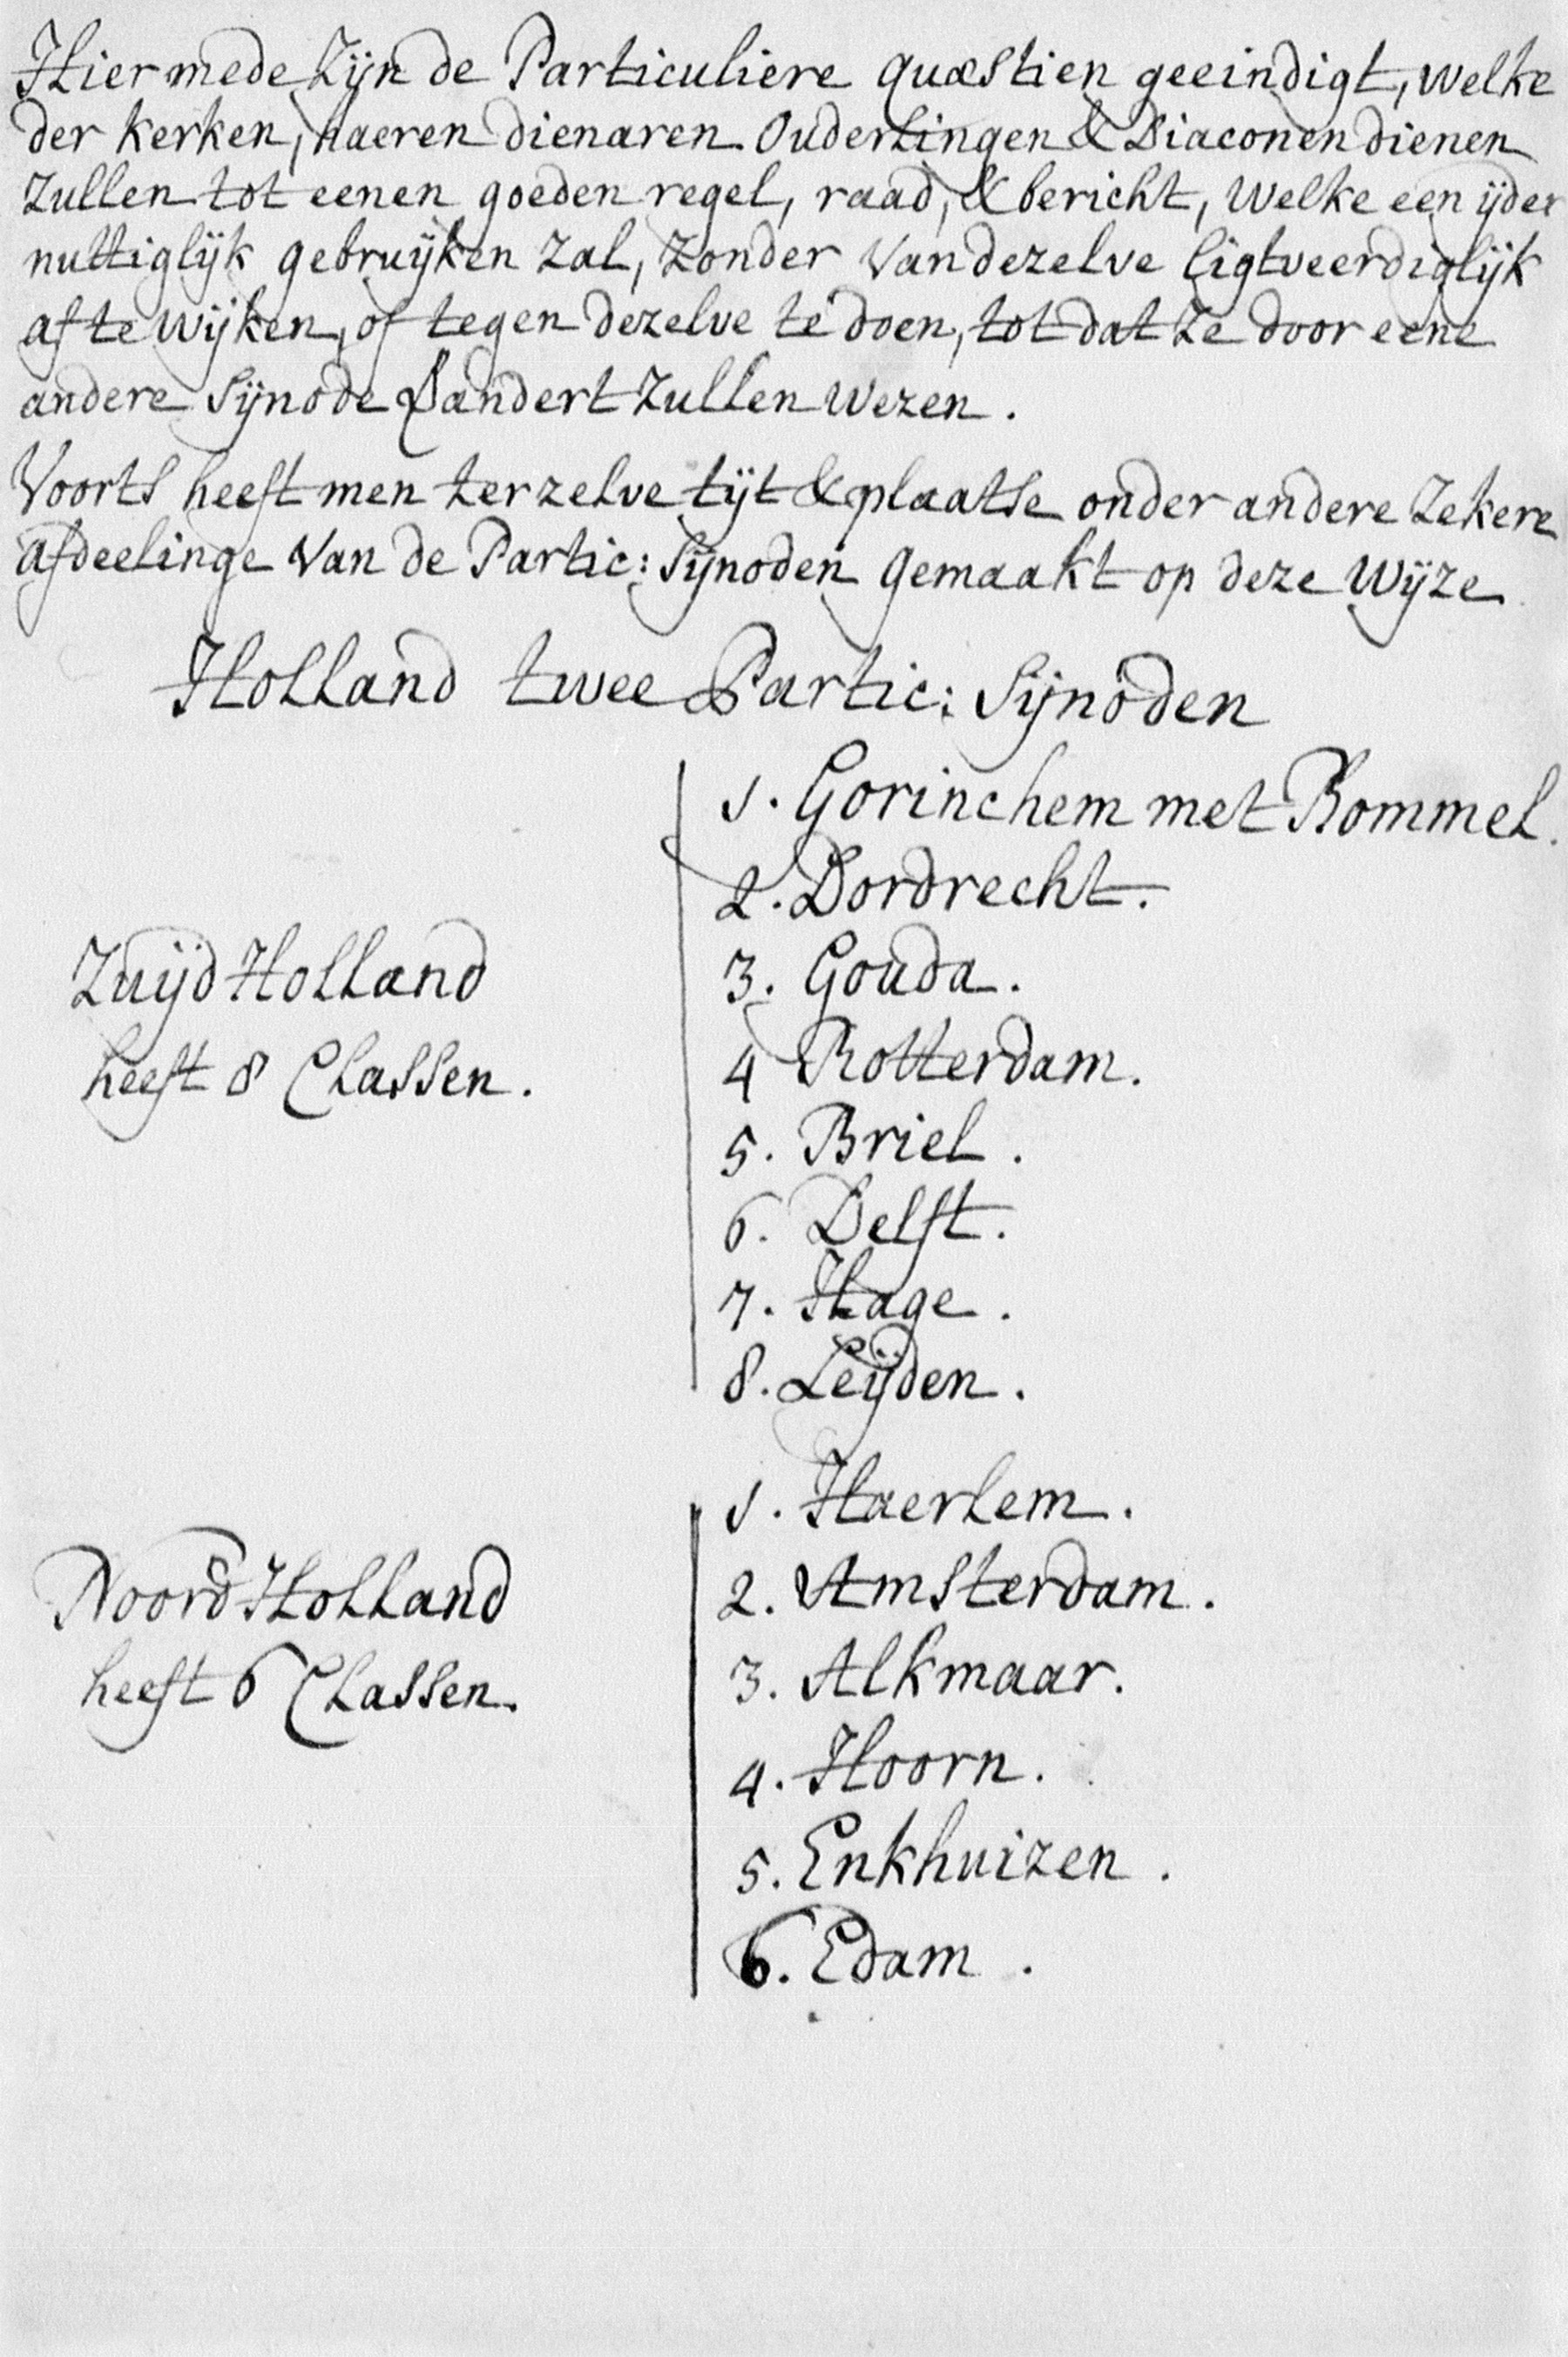 Hier mede Zijn de Particuliere quæstien geeindigt, welke
der kerken, haeren dienaren Ouderlingen & Diaconen dienen
Zullen tot eenen goeden regel, raad, & bericht, welke een ijder
nuttiglijk gebruijken Zal, Zonder Van dezelve ligtveerdiglijk
af te wijken, of tegen dezelve te doen, tot dat Ze door eene
andere Sijnode Zullen wezen.
Voorts heeft men ter zelve tijt & plaatse onder andere Zekere
afdeelinge Van de Partic: Sijnoden gemaakt op deze Wijze
Holland twee Partic: Sijnoden
Zuijd Holland
heeft 8 Classen.
1. Gorinchem met Bommel.
2. Dordrecht.
3. Gouda.
4 Rotterdam.
5. Briel.
6. Delft.
7. Hage.
8. Leijden.
Noord Holland
heeft 6 Classen.
1. Haerlem.
2. Amsterdam.
3. Alkmaar.
4. Hoorn.
5. Enkhuizen.
6. Edam.